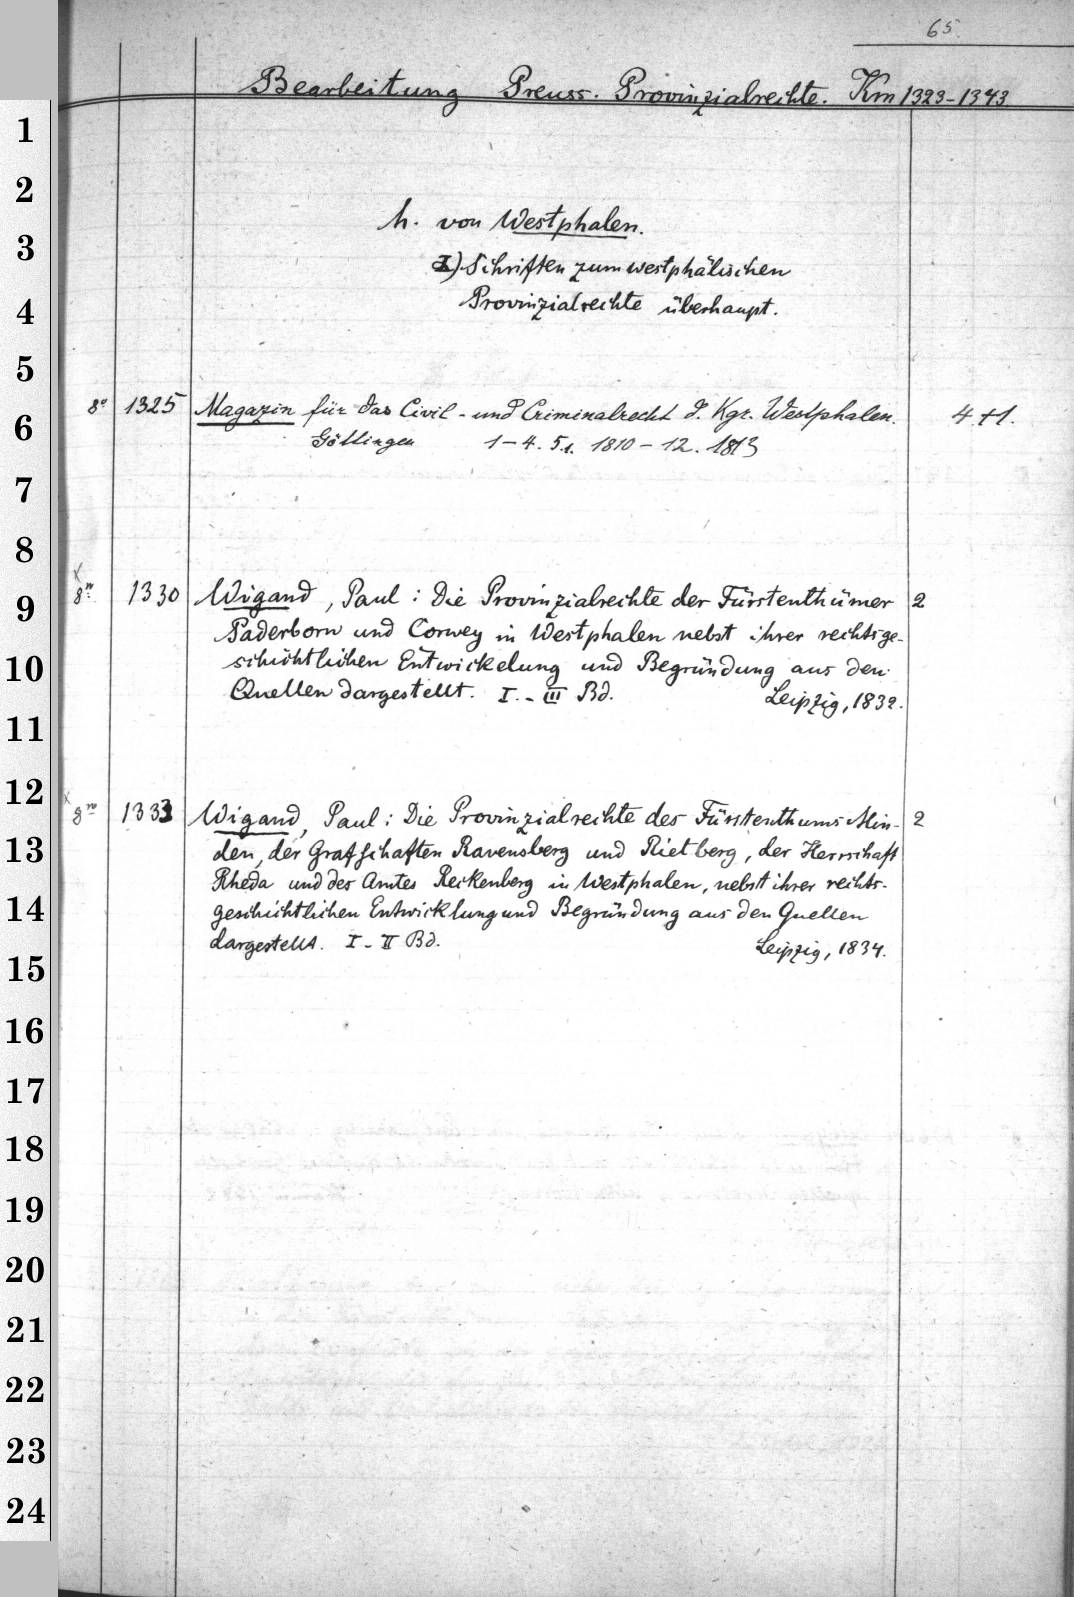 65.
Bearbeitung Preuss. Provinzialrechte. Km 1323-1343
1
2
h. von Westphalen.
3
I) Schriften zum westphälischen
4
Provinzialrechte überhaupt.
5
8° 1325 Magazin für das Civil- und Criminalrecht d. Kgr. Westphalen. 4+1.
6
Göttingen 1-4. 5,1. 1810-12. 1813
7
8
8° 1330 Wigand, Paul: Die Provinzialrechte der Fürstenthümer 2
9
Paderborn und Corvey in Westphalen nebst ihrer rechtsge-
schichtlichen Entwickelung und Begründung aus den
10
Quellen dargestellt. I.-III Bd. Leipzig, 1832.
11
12
8° 1333 Wigand, Paul: Die Provinzialrechte des Fürstenthums Min- 2
13
den, der Grafschaften Ravensberg und Rietberg, der Herrschaft
Rheda und des Amtes Reckenberg in Westphalen, nebst ihrer rechts-
14
geschichtlichen Entwicklung und Begründung aus den Quellen
dargestellt. I-II Bd. Leipzig, 1834.
15
16
17
18
19
20
21
22
23
24